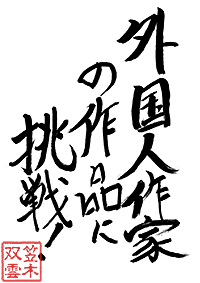 外国人作家
の作品に
挑戦!
笠木
双雲